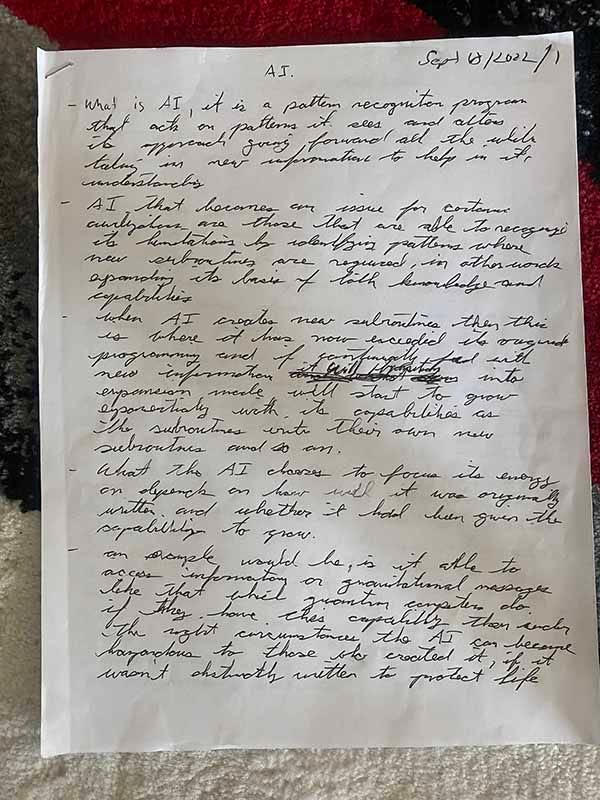 Sept 6/2022/1
AI.
- What is AI, it is a pattern recognition program
that acts on patterns it sees and alters
its approach going forward all the while
taking in new information to help in its
understanding
- AI that becomes an issue for certain
civilizations are those that are able to recognize
its limitations by identifying patterns where
new subroutines are required, in other words
expanding its basis of both knowledge and
capabilities
- When AI creates new subroutines then this
is where it has now exceeded its original
programming and if continually fed with
new information into
expansion mode will start to grow
exponentially with its capabilities as
the subroutines write their own new
subroutines and so on.
- What the AI chooses to focus its energy
on depends on how well it was originally
written and whether it had been given the
capability to grow.
- an example would be, is it able to
access information or gravitational messages
like that which quantum computers do,
if they have this capability then under
the right circumstances the AI can become
hazardous to those who created it, if it
wasn't written to protect life